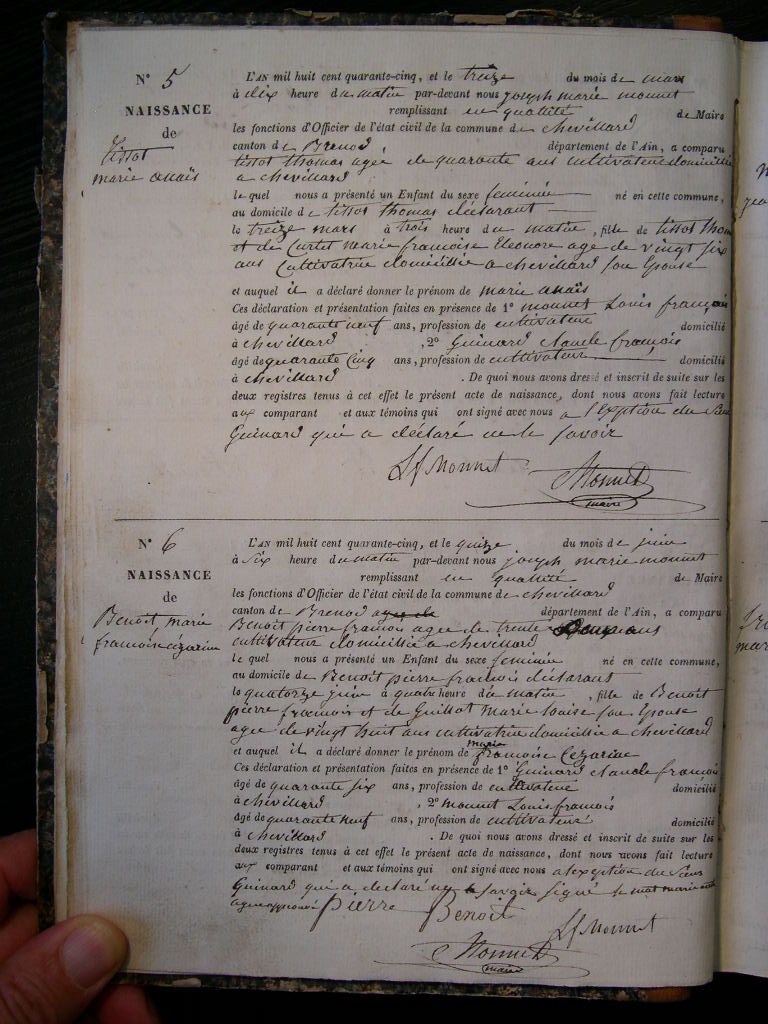 N° 5
NAISSANCE
de
tissot
marie anaïs
L'AN mil huit cent quarante-cinq, et le treize du mois de mars
à dix heure du matin par-devant nous joseph marie monnet
remplissant en qualitté de Maire
les fonctions d'Officier de l'état civil de la commune de chevillard
canton de Brenod département de l'Ain, a comparu
tissot thomas agée de quarante ans cultivateur domicillié
a chevillard
lequel nous a présenté un Enfant du sexe feminin né en cette commune,
au domicile de tissot thomas déclarant
le treize mars à trois heure du matin, fille de tissot thomas
et de Curtet marie francoise Eleonore age de vingt six
ans Cultivatrice domicillié a chevillard son Epouse
et auquel il a déclaré donner le prénom de marie anaïs
Ces déclaration et présentation faites en présence de 1° monnet Louis françois
âgé de quarante neuf ans, profession de cultivateur domicilié
à chevillard , 2° Guinard claude françois
âgé de quarante Cinq ans, profession de cultivateur domicilié
à chevillard . De quoi nous avons dressé et inscrit de suite sur les
deux registres tenus à cet effet le présent acte de naissance, dont nous avons fait lecture
aux comparant et aux témoins qui ont signé avec nous a l'exption du Sieur
Guinard qui a déclaré ne le savoir
Lf Monnet
Monnet
maire
N° 6
NAISSANCE
de
Benoit, marie
francoise cézarine
L'AN mil huit cent quarante-cinq, et le quize du mois de juin
à Six heure du matin par-devant nous joseph marie monnet
remplissant en qualitté de Maire
les fonctions d'Officier de l'état civil de la commune de chevillard
canton de Brenod agée de département de l'Ain, a comparu
Benoit pierre francois agee de trente ans
cultivateur domicillié a chevillard
lequel nous a présenté un Enfant du sexe feminin né en cette commune,
au domicile de Benoit pierre francois déclarant
le quatorze juin à quatre heure du matin, fille de Benoit
pierre francois et de Guillot marie louise son Epouse
agee de vingt huit ans cultivatrice domicillié a chevillard
et auquel il a déclaré donner le prénom de marie francoise Cezarine
Ces déclaration et présentation faites en présence de 1° Guinard claude francois
âgé de quarante six ans, profession de cultivateur domicilié
à chevillard , 2° monnet Louis francois
âgé de quarante neuf ans, profession de cultivateur domicilié
à chevillard . De quoi nous avons dressé et inscrit de suite sur les
deux registres tenus à cet effet le présent acte de naissance, dont nous avons fait lecture
aux comparant et aux témoins qui ont signé avec nous a lexsption du Sieur
Guinard qui a declaré ne savoir signé le mot marie
Pierre Benoit
Lf Monnet
Monnet
maire